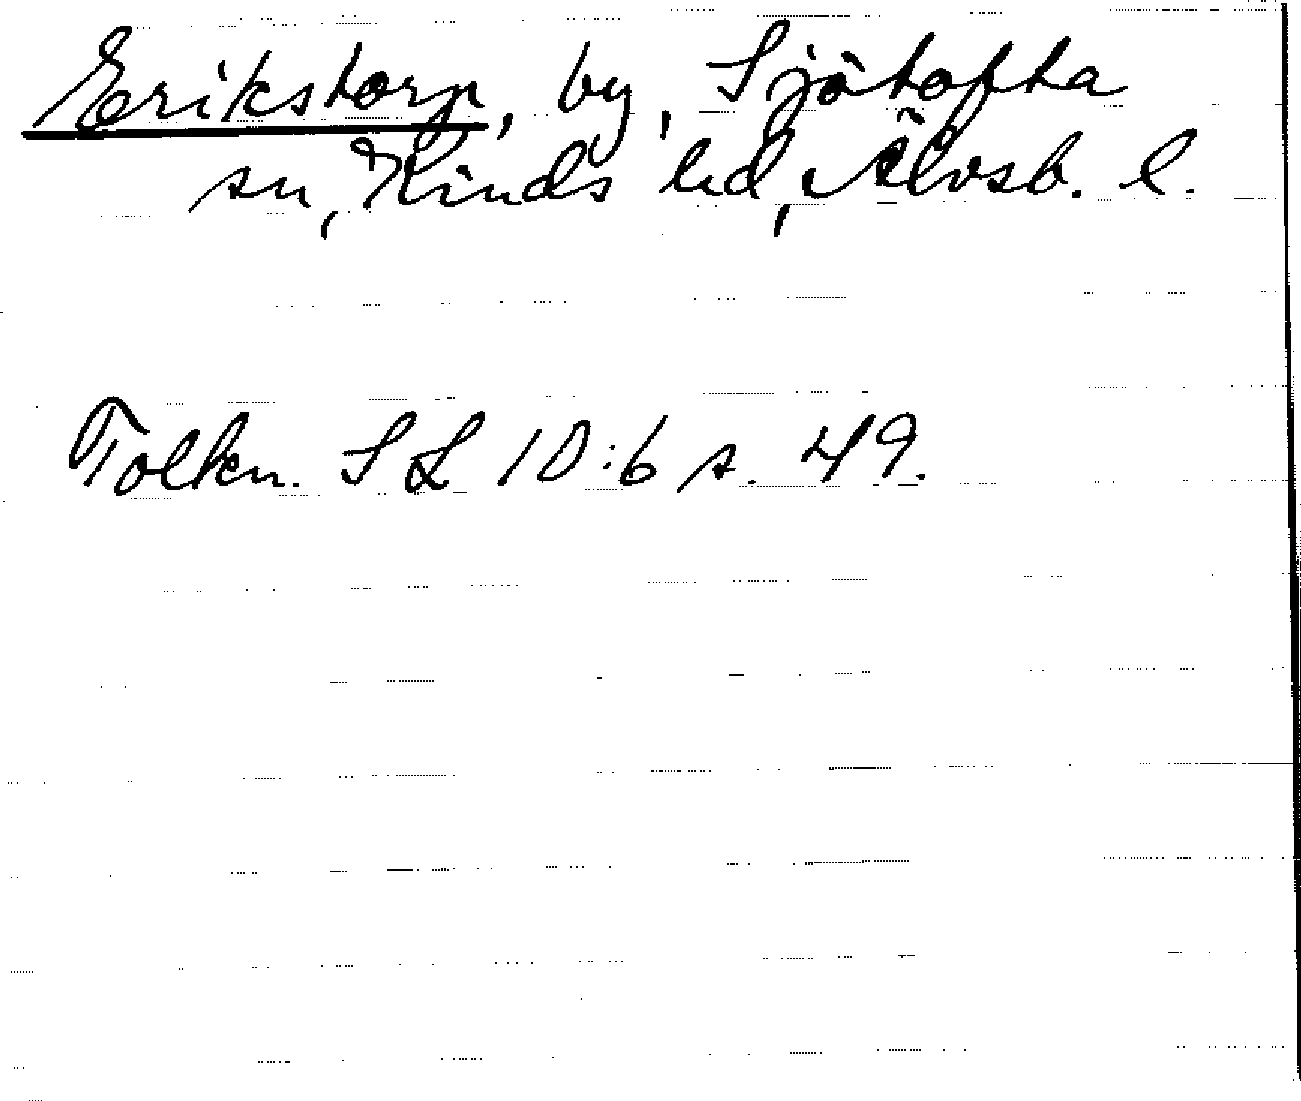 Erikstorp, by, Sjötofta
sn, Kinds hd, Älvsb. l.
Tolkn. SL 10:6 s. 49.